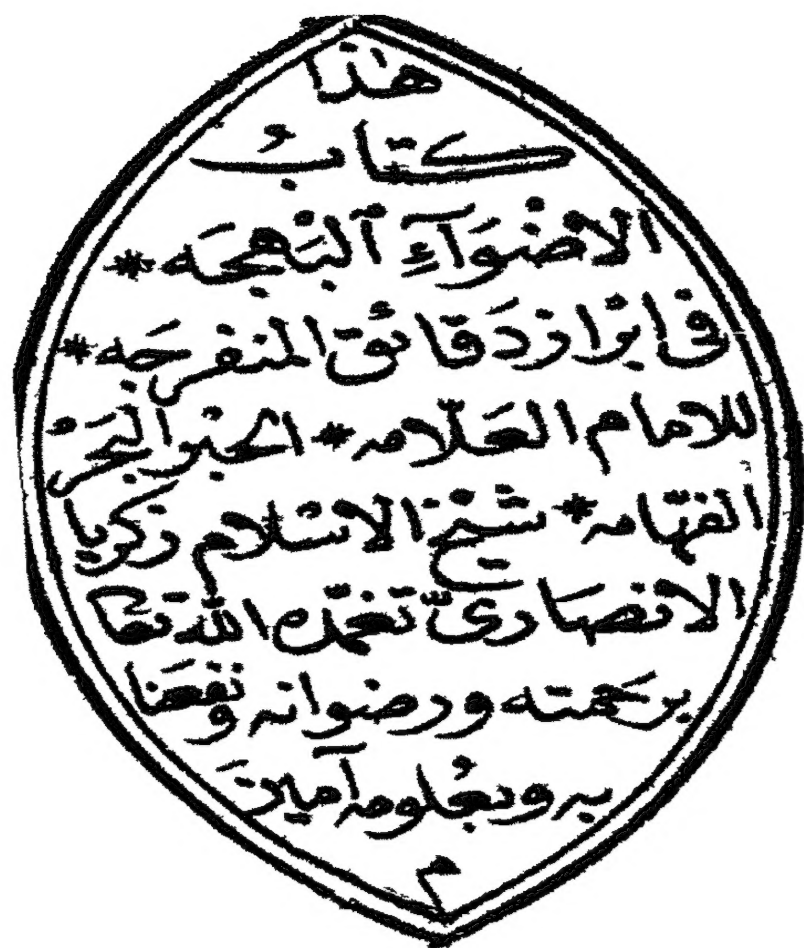 هٰذا
كتابُ
الاضْوَآءِ ٱلبَهْجَه *
فى ابْراز دَقائق المنفرجَه *
للامام العَلّامه * الحبْر البَحْر
الفهّامه * شيْخ الاسْلام زكريا
الانصَارىّ تغمّده الله تعَا
برحمَته ورضوانه ونفعَنا
به وبعُلومه آمين
م